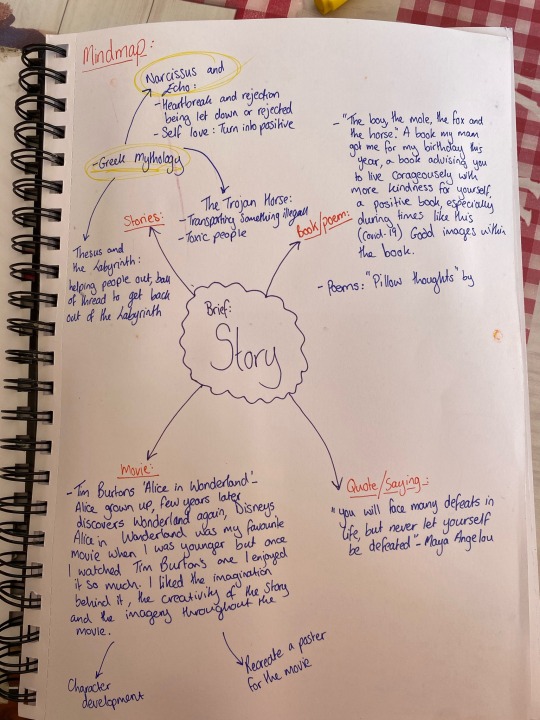 Mindmap:
Narcissus and
Echo:
- Heartbreak and rejection
being let down or rejected
- Self love: Turn into positive
- Greek Mythology
The Trojan Horse:
- Transporting something illegal
- Toxic people
Stories:
Thesus and
the Labyrinth:
helping people out, ball
of thread to get back
out of the Labyrinth
Book/poem:
- "The boy, the mole, the fox and
the horse." A book my mam
got me for my birthday this
year, a book advising you
to live corageously with
more kindness for yourself,
a positive book, especially
during times like this
(Covid-19) Good images within
the book.
- Poems: "Pillow thoughts" by
Brief:
Story
Movie:
- Tim Burtons 'Alice in Wonderland' -
Alice grown up, few years later
discovers Wonderland again, Disneys
Alice in Wonderland was my favourite
movie when I was younger but once
I watched Tim Burton's one I enjoyed
it so much. I liked the imagination
behind it, the creativity of the story
and the imagery throughout the
movie.
Character
development
Recreate a poster
for the movie
Quote/Saying:
"you will face many defeats in
life, but never let yourself
be defeated" - Maya Angelou